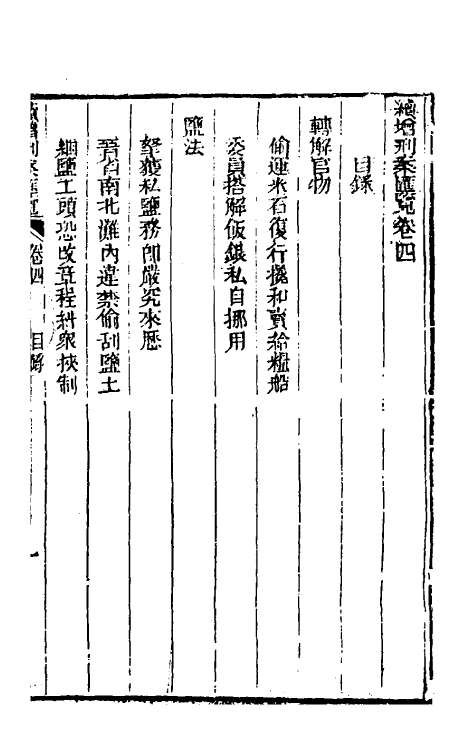 續增刑案匯覽卷四
目錄
轉解官物
偷運米石復行攙和賣給糧船
委員搭解飯銀私自挪用
鹽法
拏獲私鹽務即嚴究來歷
晉省南北灘內違禁偷刮鹽土
綑鹽工頭恐改章程糾眾挾制
續增刑案匯覽 卷四 目錄 一